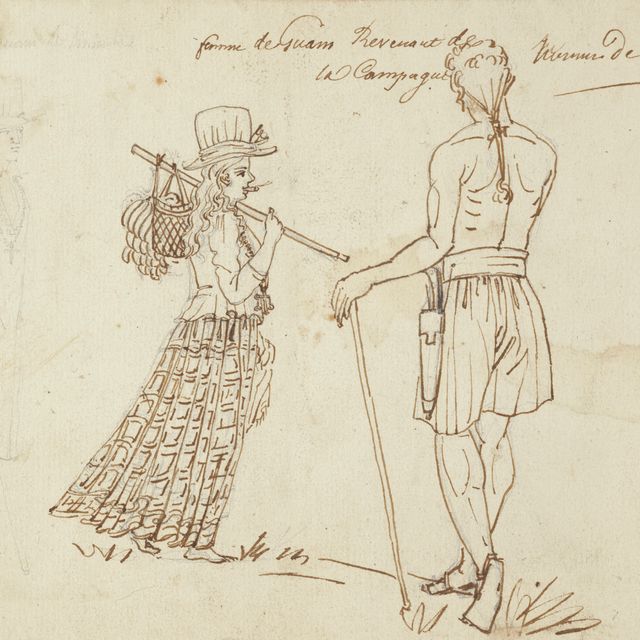 femme de Guam Revenant de
la Campagne
de